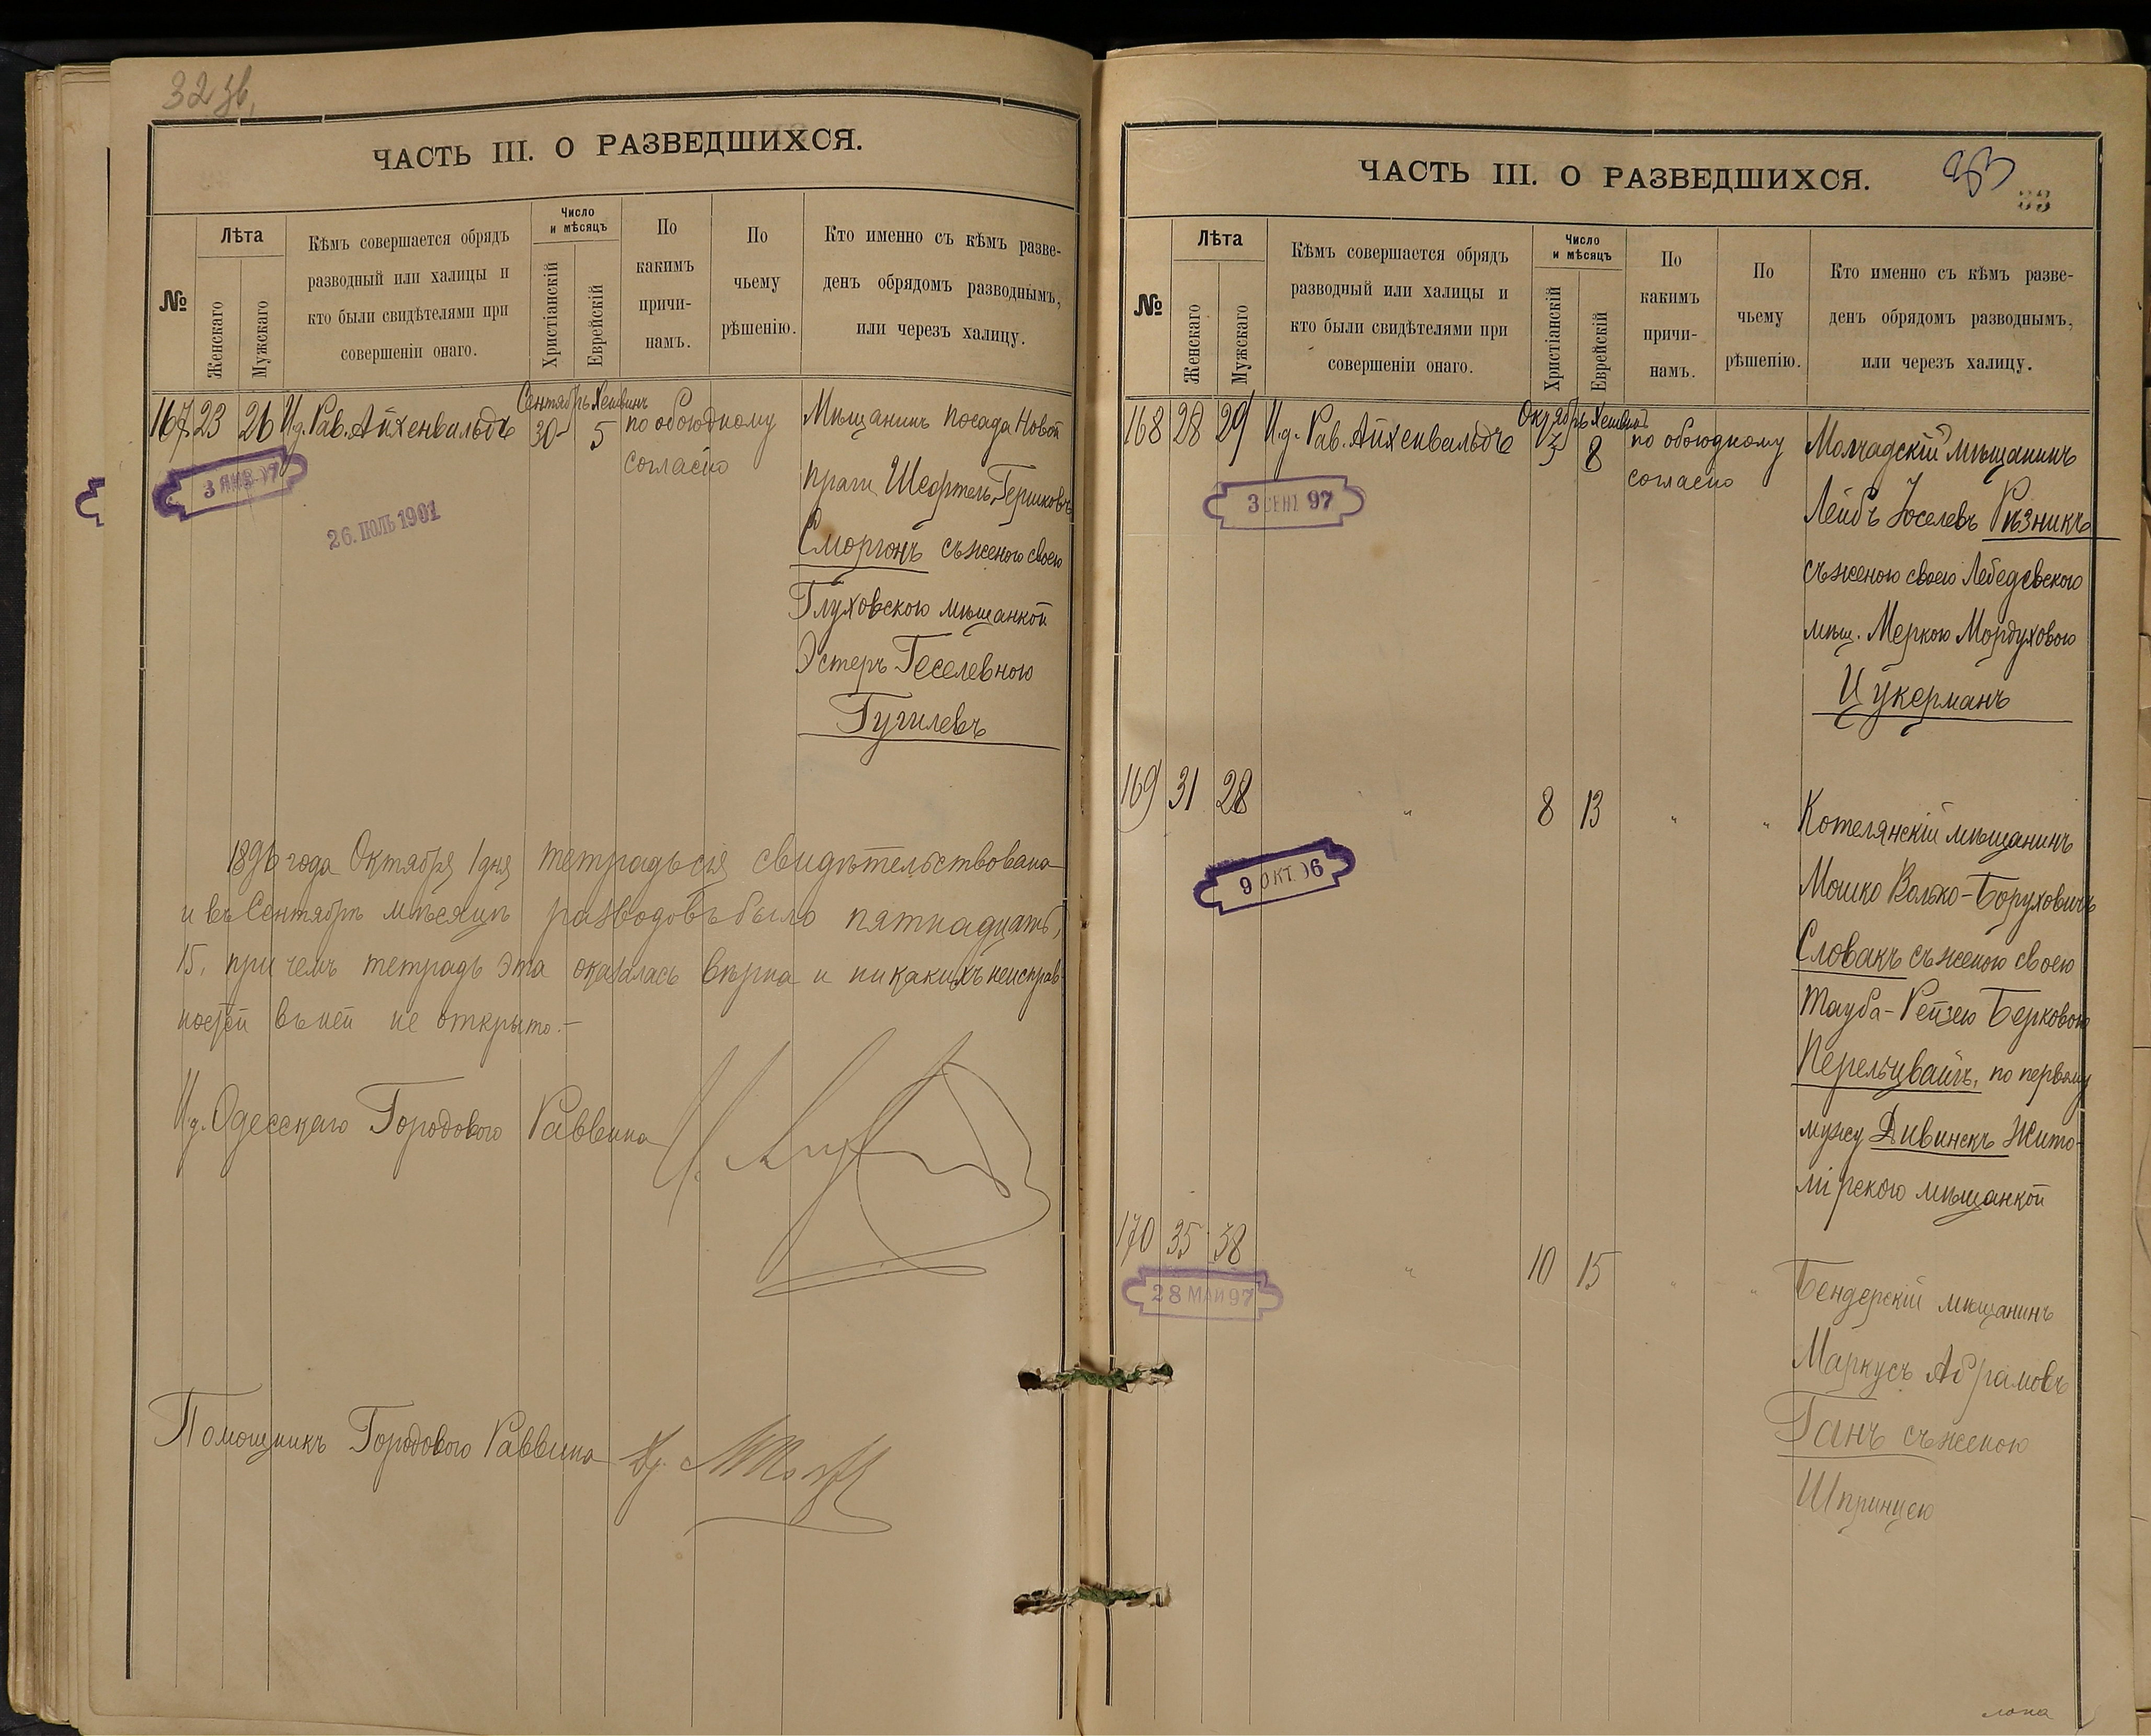 32 зв.
ЧАСТЬ III. О РАЗВЕДШИХСЯ.
№
Лѣта
Женскаго
Мужскаго
Кѣмъ совершается обрядъ
разводный или халицы и
кто были свидѣтелями при
совершеніи онаго.
Число
и мѣсяцъ
Христіанскій
Еврейскій
По
какимъ
причи-
намъ.
По
чьему
рѣшенію.
Кто именно съ кѣмъ разве-
денъ обрядомъ разводнымъ,
или черезъ халицу.
167 23 26 И.д. Рав. Айхенвальдъ
Сентябрь Хешвинъ
30 5
по обоюдному
согласію
Мѣщанинъ посада Новой
Праги Шефтель Гершковъ
Сморгонъ съ женою своею
Глуховскою мѣщанкой
Эстеръ Геселевною
Гугилевъ
3 ЯНВ. 97
26. ІЮЛЬ 1901
1896 года Октября 1 дня тетрадь сія свидѣтельствована
и въ Сентябрѣ мѣсяцѣ разводовъ было пятнадцать,
15, при чемъ тетрадь эта оказалась вѣрна и никакихъ неисправ-
ностей въ ней не открыто.-
И.д. Одесскаго Городового Раввина
Помощникъ Городового Раввина
33
ЧАСТЬ III. О РАЗВЕДШИХСЯ.
33
№
Лѣта
Женскаго
Мужскаго
Кѣмъ совершается обрядъ
разводный или халицы и
кто были свидѣтелями при
совершеніи онаго.
Число
и мѣсяцъ
Христіанскій
Еврейскій
По
какимъ
причи-
намъ.
По
чьему
рѣшенію.
Кто именно съ кѣмъ разве-
денъ обрядомъ разводнымъ,
или черезъ халицу.
168 28 29 И.д. Рав. Айхенвальдъ
Октябрь Хешвинъ
3 8
по обоюдному
согласію
Молчадскій мѣщанинъ
Лейбъ Іоселевъ Рѣзникъ
съ женою своею Лебедевскою
мѣщ. Меркою Мордуховою
Цукерманъ
3 СЕНТ. 97
169 31 28 " 8 13 " "
Котелянскій мѣщанинъ
Мошко Волько-Боруховичъ
Словакъ съ женою своею
Тауба-Рейзею Берковою
Перельцвайгъ, по первому
мужу Дивинскъ Жито-
мірскою мѣщанкой
9 ОКТ. 96
170 35 38 " 10 15 " "
Бендерскій мѣщанинъ
Маркусъ Абрамовъ
Ганъ съ женою
Шпринцею
28 МАЙ 97